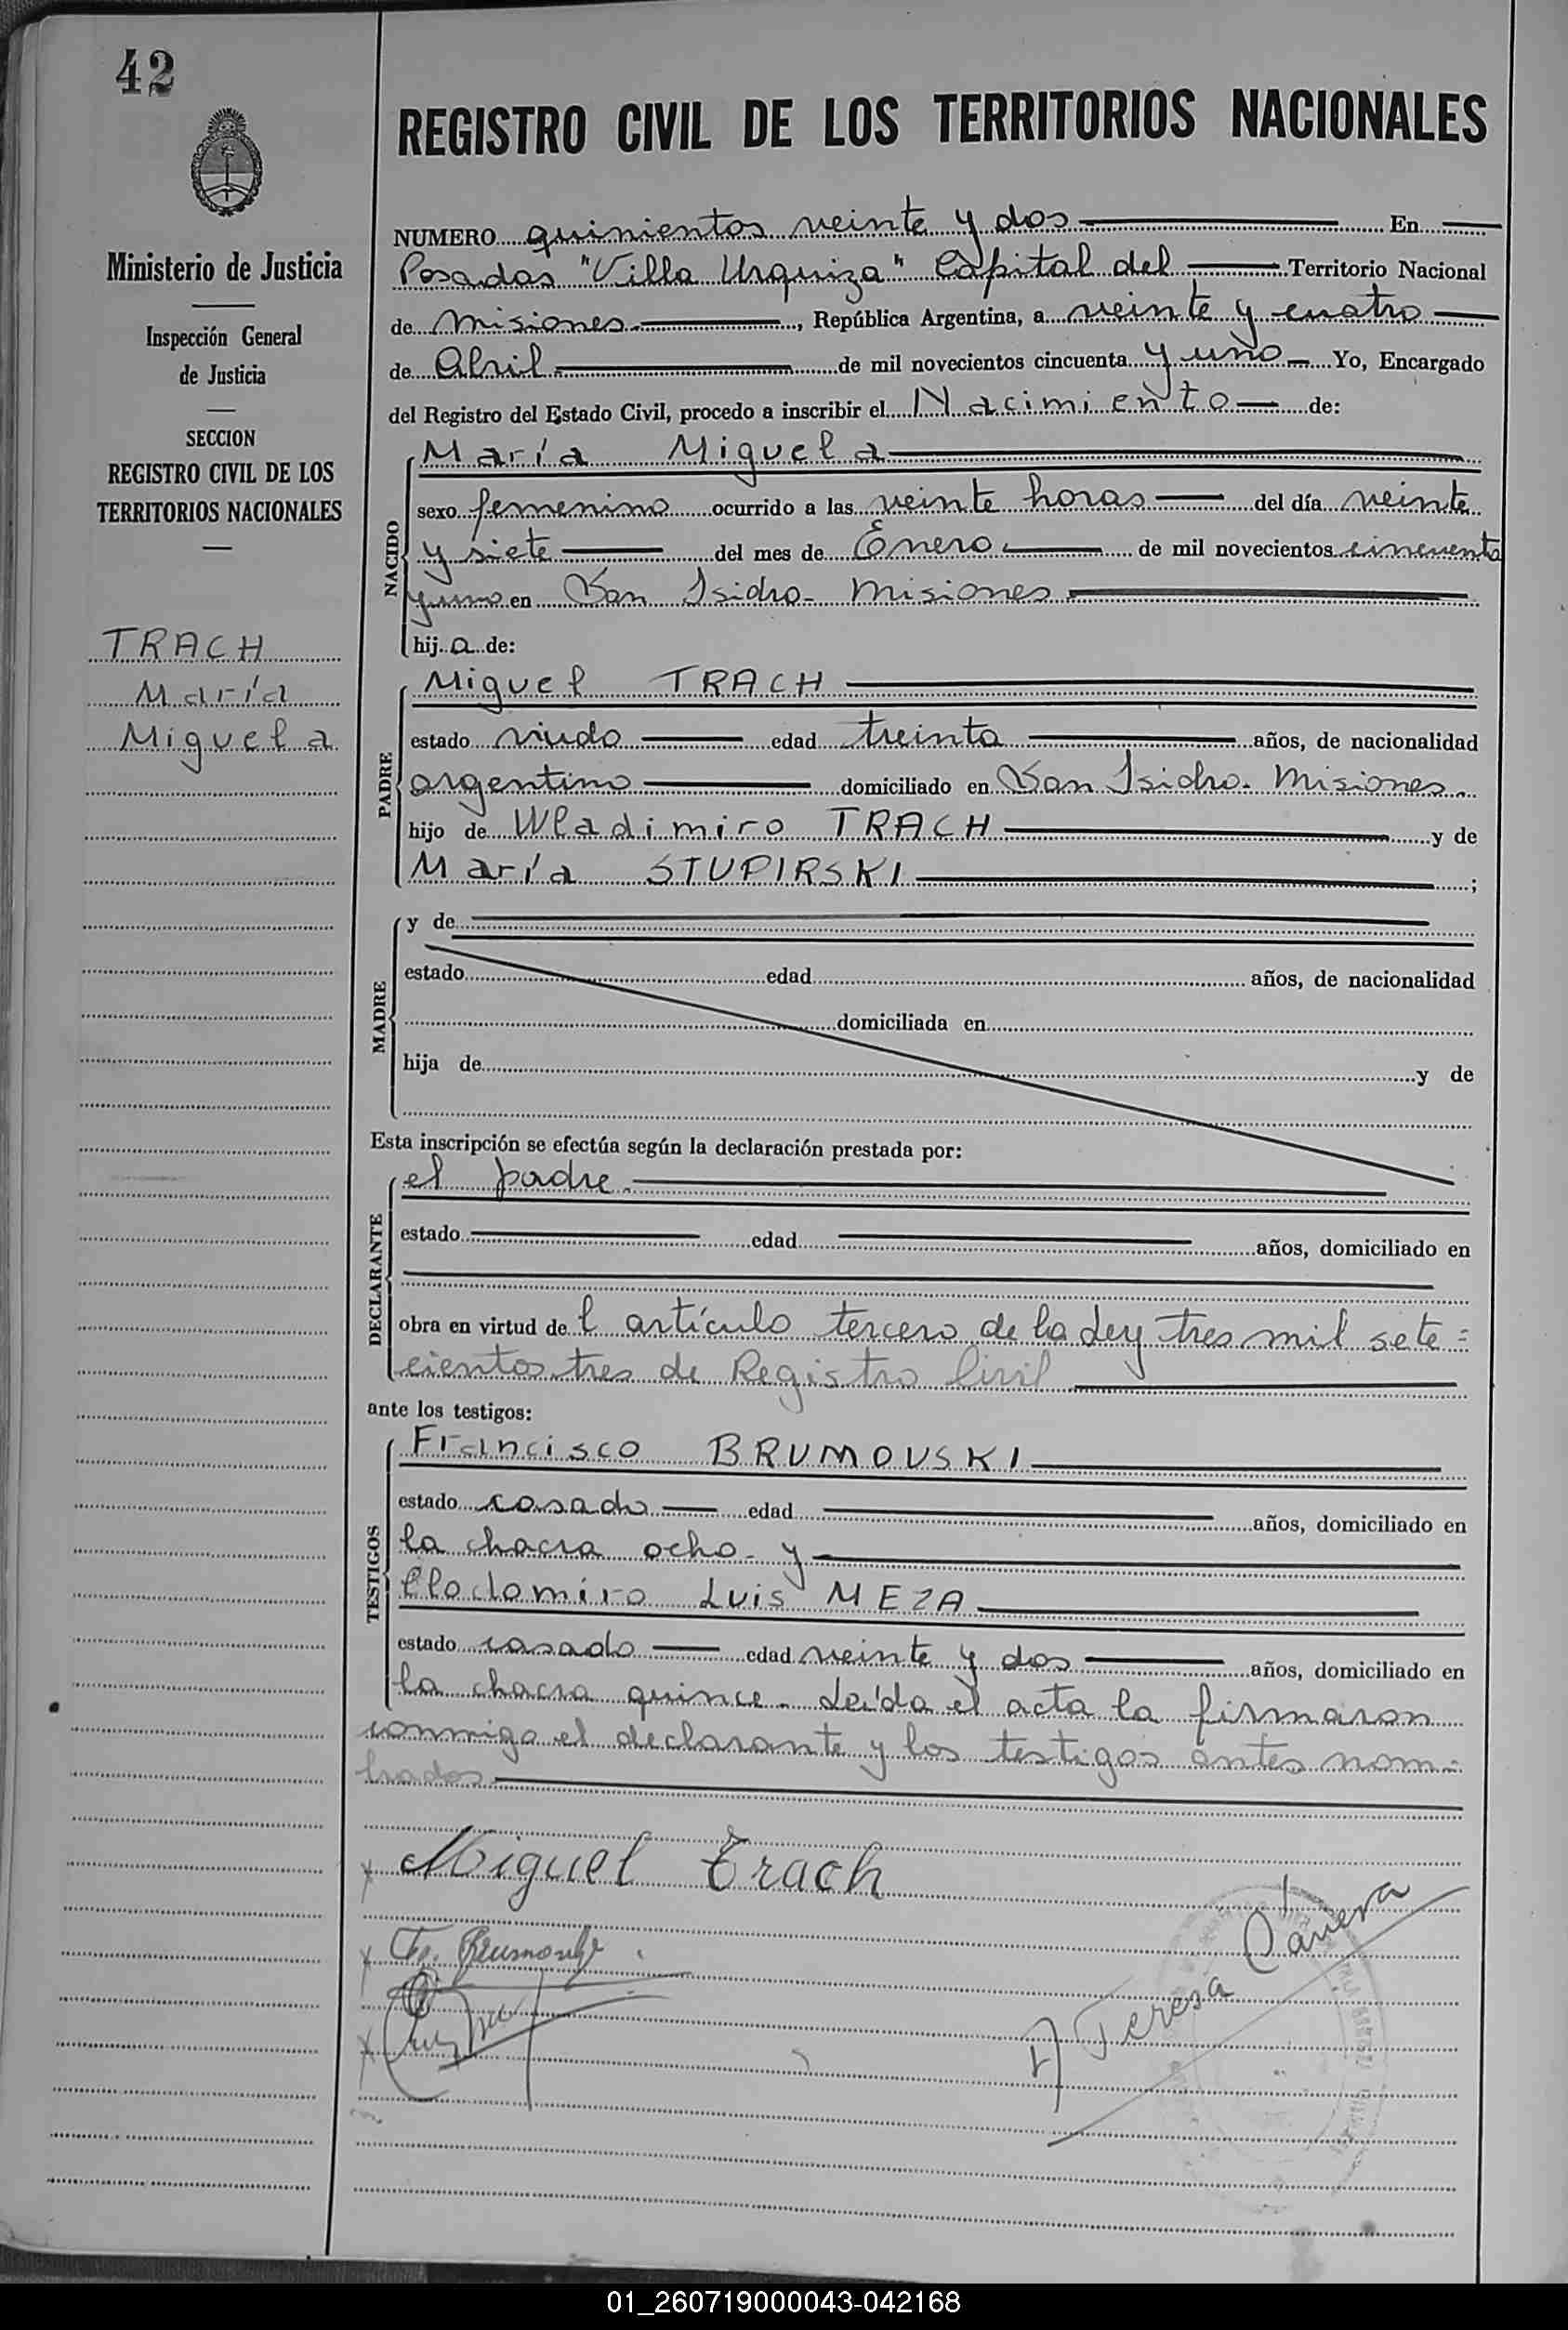 42
REGISTRO CIVIL DE LOS TERRITORIOS NACIONALES
Ministerio de Justicia
Inspección General
de Justicia
SECCION
REGISTRO CIVIL DE LOS
TERRITORIOS NACIONALES
TRACH
María
Miguela
NUMERO quinientos veinte y dos En
Posadas "Villa Urquiza" Capital del Territorio Nacional
de Misiones, República Argentina, a veinte y cuatro
de Abril de mil novecientos cincuenta y uno Yo, Encargado
del Registro del Estado Civil, procedo a inscribir el Nacimiento de:
NACIDO
María Miguela
sexo femenino ocurrido a las veinte horas del día veinte
y siete del mes de Enero de mil novecientos cincuenta
y uno en San Isidro - Misiones
hija de:
PADRE
Miguel TRACH
estado viudo edad treinta años, de nacionalidad
argentino domiciliado en San Isidro - Misiones.
hijo de Wladimiro TRACH y de
María STUPIRSKI;
MADRE
y de
estado edad años, de nacionalidad
domiciliada en
hija de y de
Esta inscripción se efectúa según la declaración prestada por:
DECLARANTE
el padre.
estado edad años, domiciliado en
obra en virtud del artículo tercero de la Ley tres mil sete=
cientos tres de Registro Civil
ante los testigos:
TESTIGOS
Francisco BRUMOVSKI
estado casado edad años, domiciliado en
la chacra ocho - y
Clodomiro Luis MEZA
estado casado edad veinte y dos años, domiciliado en
la chacra quince. Leída el acta la firmaron
conmigo el declarante y los testigos antes nom-
brados
Miguel Trach
Teresa
01_260719000043-042168